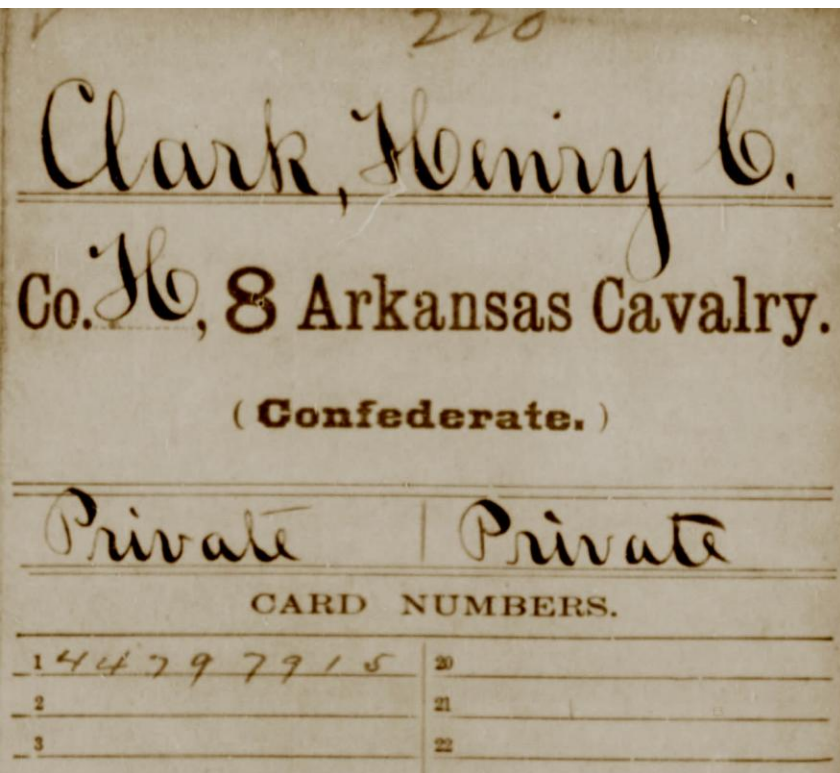 220
Clark, Henry C.
Co. H, 8 Arkansas Cavalry.
(Confederate.)
Private | Private
CARD NUMBERS.
1 44797915 20
2 21
3 22